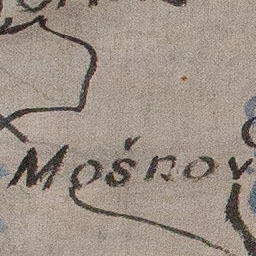 Mošnov